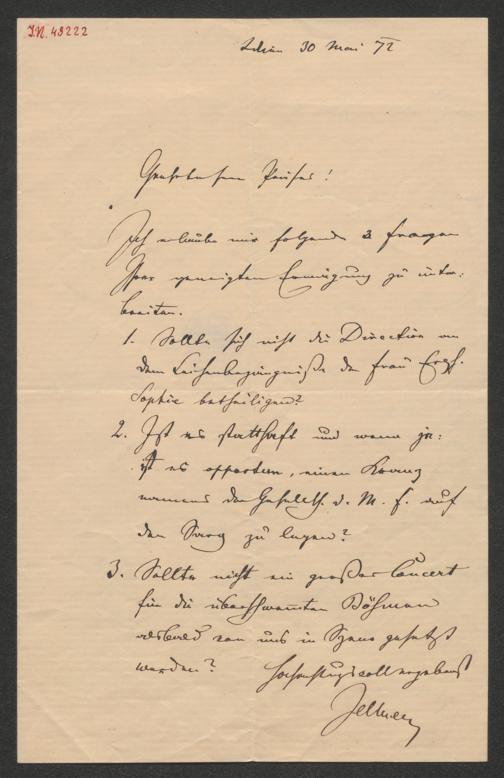 I.N. 49222
Wien 30 Mai 72
Geehrtester Herr Präses!
Ich erlaube mir folgende 3 Fragen
Ihrer geneigten Erwägung zu unter-
breiten.
1. Sollte sich nicht die Direction an
dem Leichenbegängniße der Frau Erzh.
Sophie betheiligen?
2. Ist es statthaft und wenn ja:
ist es opportun, einen Kranz
namens der Gesellsch. d. M. f. auf
den Sarg zu legen?
3. Sollte nicht ein großes Concert
für die überschwemmten Böhmen
alsbald von uns in Szene gesetzt
werden? Hochachtungsvoll ergebenst
Zellner